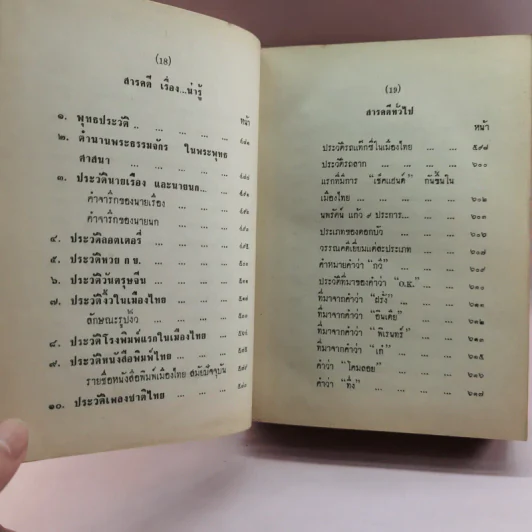 (18)
สารคดี เรื่อง...น่ารู้
หน้า
๑. พุทธประวัติ .. ... ... ... ...
๒. ตำนานพระธรรมจักร ในพระพุทธ
ศาสนา ... ... ... ...
๓. ประวัตินายเรือง และนายนก... ...
คำจารึกของนายเรือง ... ...
คำจารึกของนายนก ... ...
๔. ประวัติลอตเตอรี่ ... ... ...
๕. ประวัติหวย ก ข. ... ... ...
๖. ประวัติวันตรุษจีน ... ... ...
๗. ประวัติงิ้วในเมืองไทย ... ...
ลักษณะรูปงิ้ว ... ... ...
๘. ประวัติโรงพิมพ์แรกในเมืองไทย ...
๙. ประวัติหนังสือพิมพ์ไทย... ... ...
รายชื่อหนังสือพิมพ์เมืองไทย สมัยปัจจุบัน
๑๐. ประวัติเพลงชาติไทย ... ... ...
(19)
สารคดีทั่วไป
หน้า
ประวัติรถแท๊กซี่ในเมืองไทย ... ... ๕๙๘
ประวัติรถลาก ... ... ... ๖๐๐
แรกที่มีการ "เช็คแฮนด์" กันขึ้นใน
เมืองไทย ... ... ... ... ๖๐๒
นพรัตน์ แก้ว ๙ ประการ... ... ... ๖๐๓
ประเภทของดอกบัว ... ... ... ๖๐๖
วรรณคดีเยี่ยมแต่ละประเภท ... ... ๖๐๗
ความหมายคำว่า "กวี" ... ... ๖๐๙
ประวัติที่มาของคำว่า "O.K." ... ... ๖๑๐
ที่มาจากคำว่า "ฝรั่ง" ... ... ๖๑๑
ที่มาจากคำว่า "อินเดีย" ... ... ๖๑๒
ที่มาจากคำว่า "พิเรนทร์" ... ...
ที่มาจากคำว่า "เก๋" ... ... ๖๑๕
คำว่า "โคมลอย" ... ... ... ๖๑๖
คำว่า "ทึ่ง" ... ... ... ๖๑๗